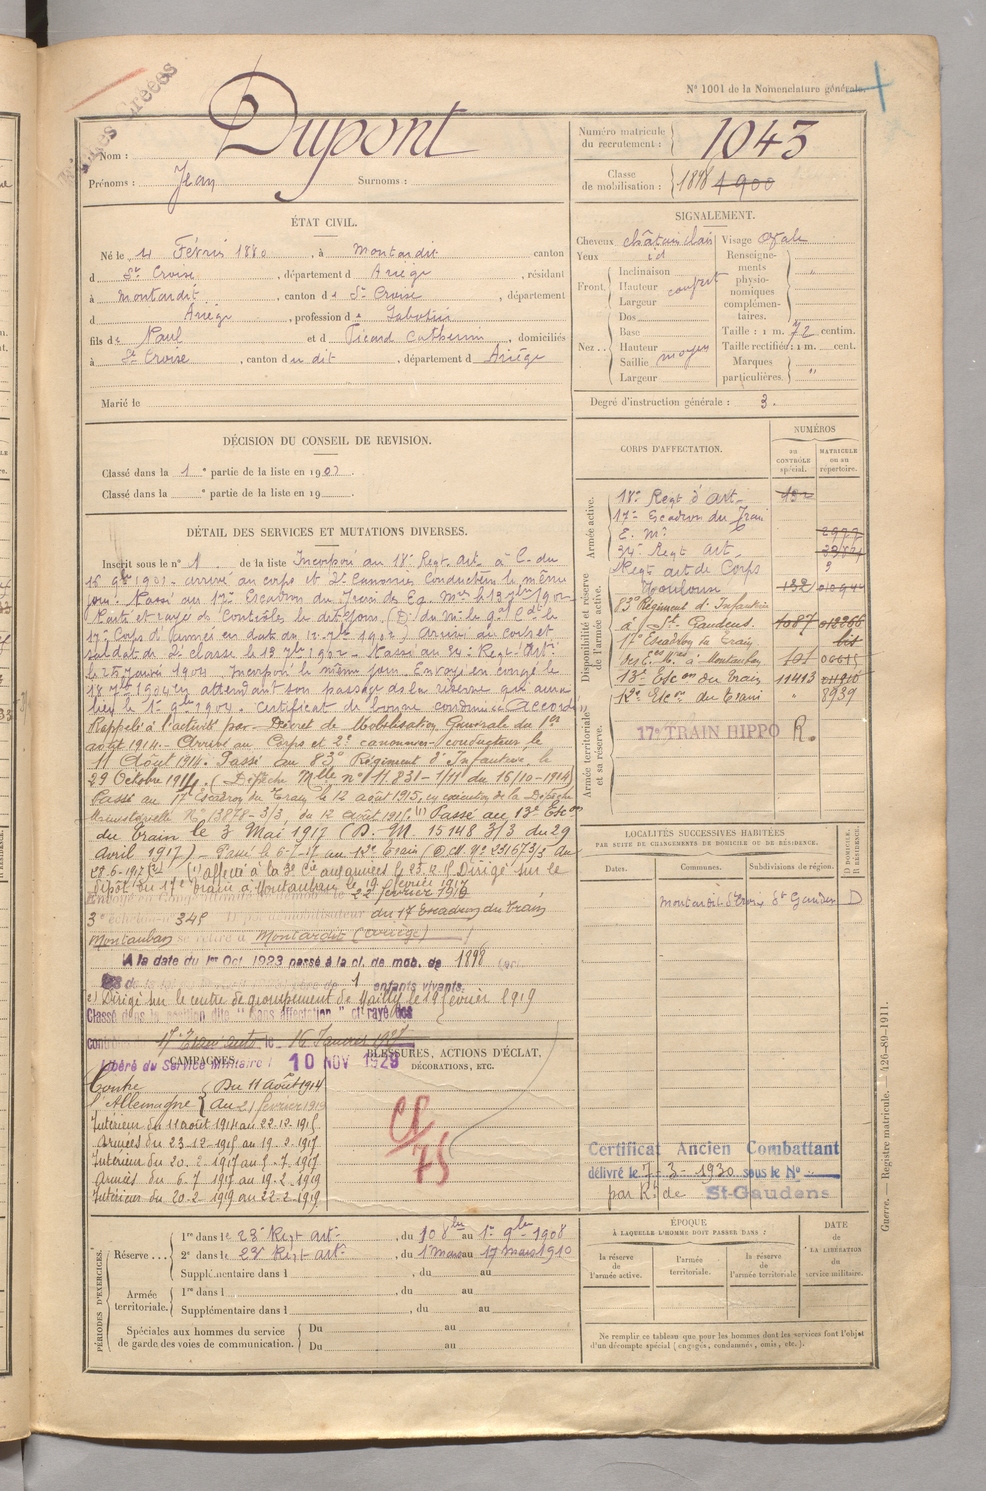 Nº 1001 de la Nomenclature générale.
Nom : Dupont
Prénoms : Jean Surnoms :
Numéro matricule du recrutement : 1043
Classe de mobilisation : 1898 1900
ÉTAT CIVIL.
Né le 4 Février 1880, à Montardit canton
d Ste Croise, département d Ariège, résidant
à Montardit, canton de Ste Croise, département
d Ariège, profession de Sabotier
fils de Paul et d Picard Catherine, domiciliés
à Ste Croise, canton du dit, département d Ariège
Marié le
SIGNALEMENT.
Cheveux châtain clair Visage ovale
Yeux id
Front Inclinaison Hauteur Largeur
Nez Dos Base Hauteur Saillie moyen Largeur
Renseignements physionomiques complémentaires. "
Taille : 1 m. 72 centim.
Taille rectifiée : 1 m. cent.
Marques particulières. "
Degré d'instruction générale : 3.
DÉCISION DU CONSEIL DE REVISION.
Classé dans la 1e partie de la liste en 1901
Classé dans la e partie de la liste en 19
CORPS D'AFFECTATION.
NUMÉROS
au CONTRÔLE spécial.
MATRICULE ou au répertoire.
Armée active.
18e Regt d'Art
17e Escadron du Train
E. Mre 2977
34e Regt Art.
Disponibilité et réserve de l'armée active.
Regt art de Corps
Toulouse 132
83e Régiment d'Infanterie
à St Gaudens 1087
17e Escadron du Train
à Montauban 101
13e Escon du Train 11413
12e Escon du Train " 8939
Armée territoriale et sa réserve.
17e TRAIN HIPPO R.
DÉTAIL DES SERVICES ET MUTATIONS DIVERSES.
Inscrit sous le nº 1 de la liste Incorporé au 18e Regt Art. à C. du
16 9bre 1901. arrivé au corps et 2e Canonnier Conducteur le même
jour. Passé au 17e Escadron du Train des Eq. Mres le 13 7bre 1902
17e Corps d'armée en date du 12 7bre 1902) Arrivé au corps et
soldat de 2e classe le 13 7bre 1902. Passé au 34e Regt d'Art.
le 25 Janvier 1904 Incorporé le même jour. Envoyé en congé le
18 7bre 1904 en attendant son passage ds la réserve qui aura
lieu le 1er 9bre 1904. Certificat de bonne conduite "Accordé"
Rappelé à l'activité par Décret de Mobilisation Générale du 1er
août 1914. Arrivé au Corps et 2e canonnier conducteur le
11 Août 1914. Passé au 83e Régiment d'Infanterie, le
29 Octobre 1914. (Dépêche Mlle nº 11.831-1/11 du 16/10-1914)
Passé au 17e Escadron du Train le 12 août 1915, en exécution de la Dépêche
Ministérielle Nº 13878-3/3, du 12 août 1915. (1) Passé au 13e Escon
du Train le 3 Mai 1917 (D. M. 15148 3/3 du 29
Avril 1917) Passé le 6-7-17 au 12e Train (D.M. Nº 231673/3 du
28-6-1917) (1) affecté à la 3e Cie aux armées le 23.12.15 Dirigé sur le
dépôt du 17e Train à Montauban le 19 février 1917
22 février 1919
3e échelon nº 345 Dépôt démobilisateur du 17 Escadron du Train
Montauban se retire à Montardit (Ariège)
A la date du 1er Oct 1923 passé à la cl. de mob. de 1898
1 enfants vivants.
2) Dirigé sur le centre de groupement de Mailly le 19 février 1919
Classé dans la position dite "sans affectation" et rayé des
17e Train auto le 16 Janvier 1927
Libéré du Service Militaire 10 NOV 1929
CAMPAGNES.
Contre l'Allemagne { Du 11 Août 1914
Au 21 février 1919
Intérieur du 11 août 1914 au 22.12.1915
Armées du 23-12-1915 au 19.2.1917
Intérieur du 20.2.1917 au 5.7.1917
Armées du 6.7.1917 au 19.2.1919
Intérieur du 20.2.1919 au 22.2.1919
BLESSURES, ACTIONS D'ÉCLAT, DÉCORATIONS, ETC.
Cl/75
LOCALITÉS SUCCESSIVES HABITÉES
PAR SUITE DE CHANGEMENTS DE DOMICILE OU DE RÉSIDENCE.
Dates. Communes. Subdivisions de région. D DOMICILE. R RÉSIDENCE.
Montardit Ste Croise St Gaudens D
Certificat Ancien Combattant
délivré le 7-3-1930 sous le Nº
par Rt de St-Gaudens
PÉRIODES D'EXERCICES.
Réserve
1re dans le 23e Regt art., du 10 8bre au 1er 9bre 1908
2e dans le 23e Regt art., du 1er Mars au 17 mars 1910
Supplémentaire dans l , du au
Armée territoriale.
1re dans l , du au
Supplémentaire dans l , du au
Spéciales aux hommes du service de garde des voies de communication.
Du au
Du au
ÉPOQUE
À LAQUELLE L'HOMME DOIT PASSER DANS :
la réserve de l'armée active.
l'armée territoriale.
la réserve de l'armée territoriale
DATE de LA LIBÉRATION du service militaire.
Ne remplir ce tableau que pour les hommes dont les services font l'objet
d'un décompte spécial (engagés, condamnés, omis, etc.).
Guerre. — Registre matricule. — 426-89-1911.